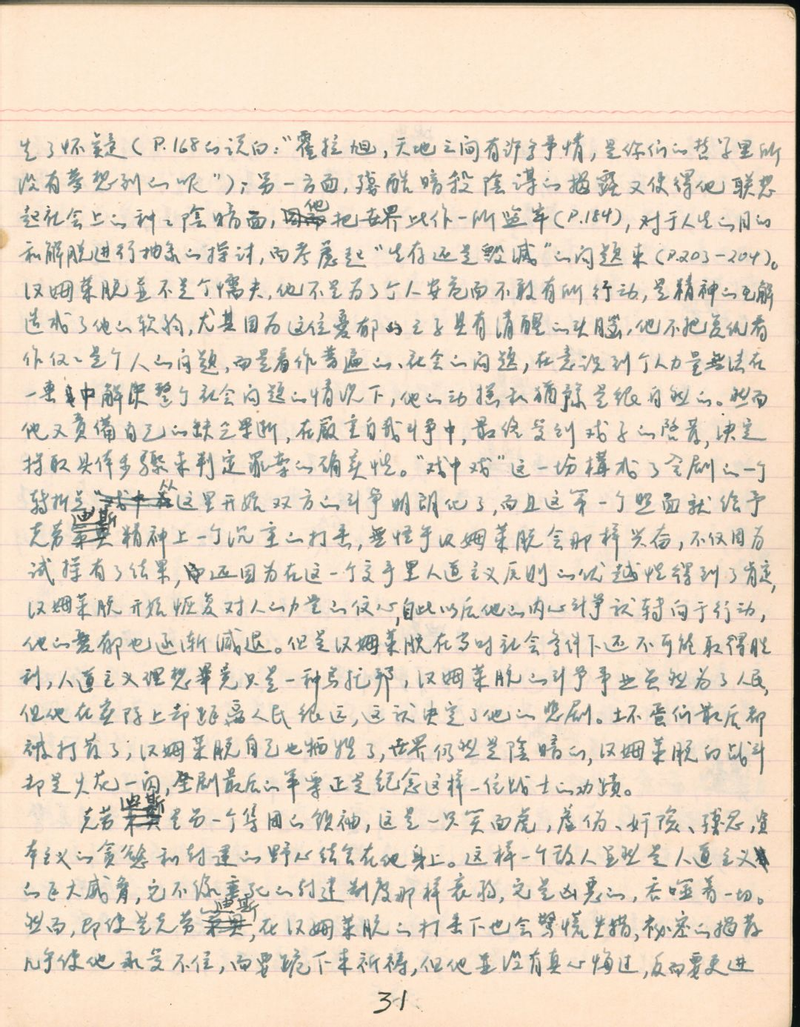 生了怀疑（P.168的说白：“霍拉旭，天地之间有许多事情，是你们的哲学里所
没有梦想到的呢”）；另一方面，残酷暗杀阴谋的揭露又使得他联想
起社会上的种种阴暗面，他把世界比作一所监牢（P.184），对于人生的目的
和解脱进行抽象的探讨，而考虑起“生存还是毁灭”的问题来（P.203-204）。
汉姆莱脱並不是个懦夫，他不是为了个人安危而不敢有所行动，是精神的瓦解
造成了他的软弱，尤其因为这位忧郁的王子具有清醒的头脑，他不把复仇看
作仅仅是个人的问题，而是看作普遍的、社会的问题，在意识到个人力量無法在
一击中解决整个社会问题的情况下，他的动摇和犹豫是很自然的。然而
他又责备自己的缺乏果断，在严重自我斗争中，最终受到戏子的启发，决定
採取具体步骤来判定罪案的确实性。“戏中戏”这一场構成了全剧的一个
转折点，从这里开始双方的斗争明朗化了，而且这第一个照面就给予
克劳迪斯精神上一个沉重的打击，無怪乎汉姆莱脱会那样兴奋，不仅因为
试探有了结果，还因为在这一个交手里人道主义原则的优越性得到了肯定，
汉姆莱脱开始恢复对人的力量的信心，自此以后他的内心斗争就转向于行动，
他的忧郁也逐渐减退。但是汉姆莱脱在当时社会条件下还不可能取得胜
利，人道主义理想毕竟只是一种乌托邦，汉姆莱脱的斗争事业虽然为了人民，
但他在实际上却距离人民很远，这就决定了他的悲剧。坏蛋们最后都
被打败了；汉姆莱脱自己也牺牲了，世界仍然是阴暗的，汉姆莱脱的战斗
却是火花一闪，全剧最后的军乐正是纪念这样一位战士的功绩。
克劳迪斯是另一个集团的领袖，这是一只笑面虎，虚伪、奸险、残忍，资
本主义的贪慾和封建的野心结合在他身上。这样一个敌人显然是人道主义
的巨大威胁，它不像垂死的封建制度那样衰弱，它是凶恶的，吞噬着一切。
然而，即使是克劳迪斯，在汉姆莱脱的打击下也会惊慌失措，秘密的揭发
几乎使他承受不住，而要跪下来祈祷，但他並没有真心悔过，反而要更进
31